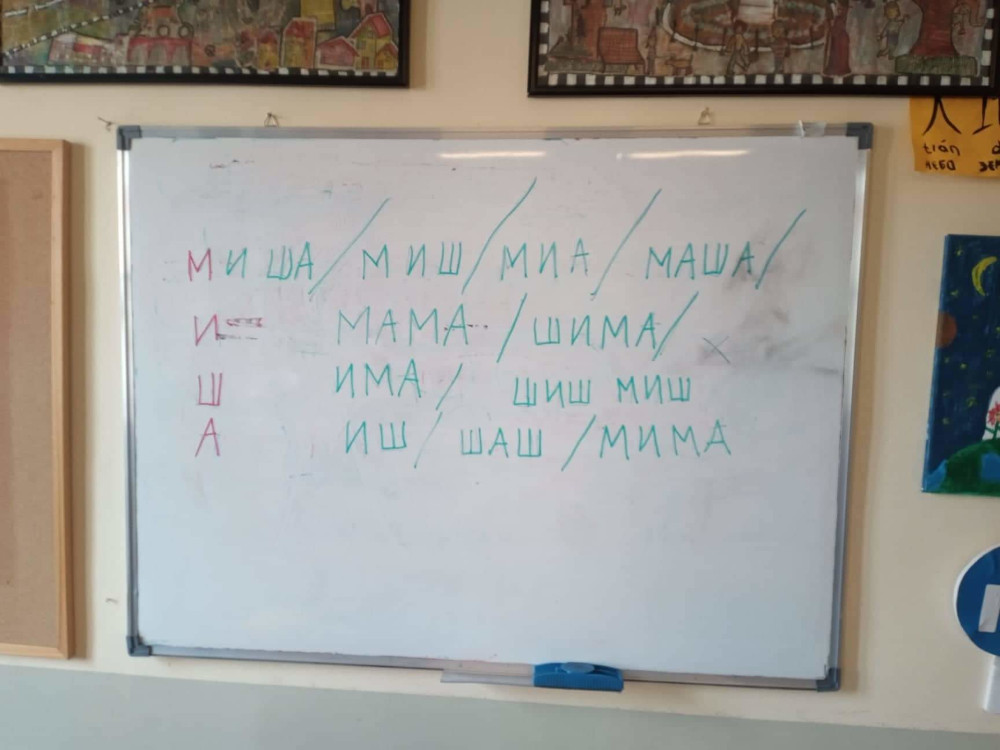 МИША / МИШ / МИА / МАША /
И МАМА / ШИМА /
Ш ИМА / ШИШ МИШ
А ИШ / ШАШ / МИМА
trán